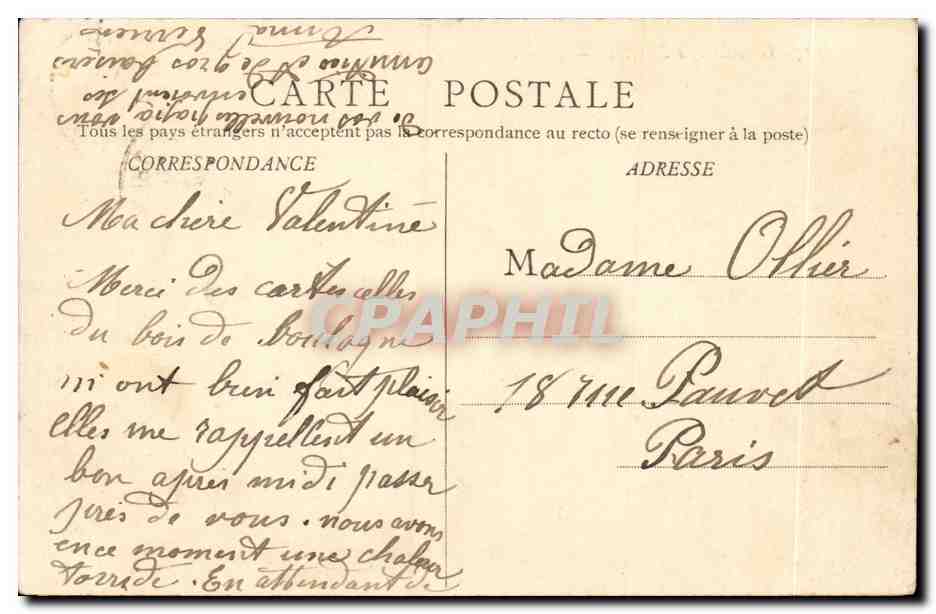 CARTE POSTALE
Tous les pays étrangers n'acceptent pas la correspondance au recto (se renseigner à la poste)
CORRESPONDANCE
Ma chère Valentine
Merci des cartes celles
du bois de boulogne
m ont bien fait plaisir
elles me rappellent un
bon après midi passer
près de vous. nous avons
en ce moment une chaleur
torride. En attendant de
de vos nouvelles papa vous
envoient des
amitiées et de gros baisers
Anna
ADRESSE
Madame Ollier
18 rue Pauvet
Paris
CPAPHIL